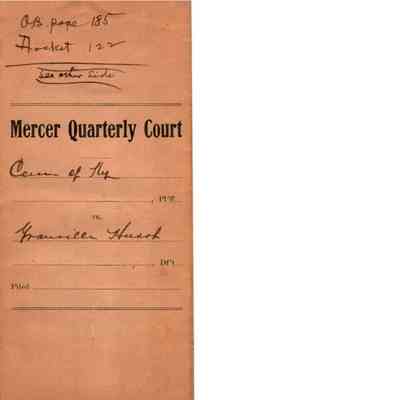 OB. page 185
Docket 122
see other side
Mercer Quarterly Court
Com of Ky
, Plff.
vs.
Granville
, Dft.
Filed